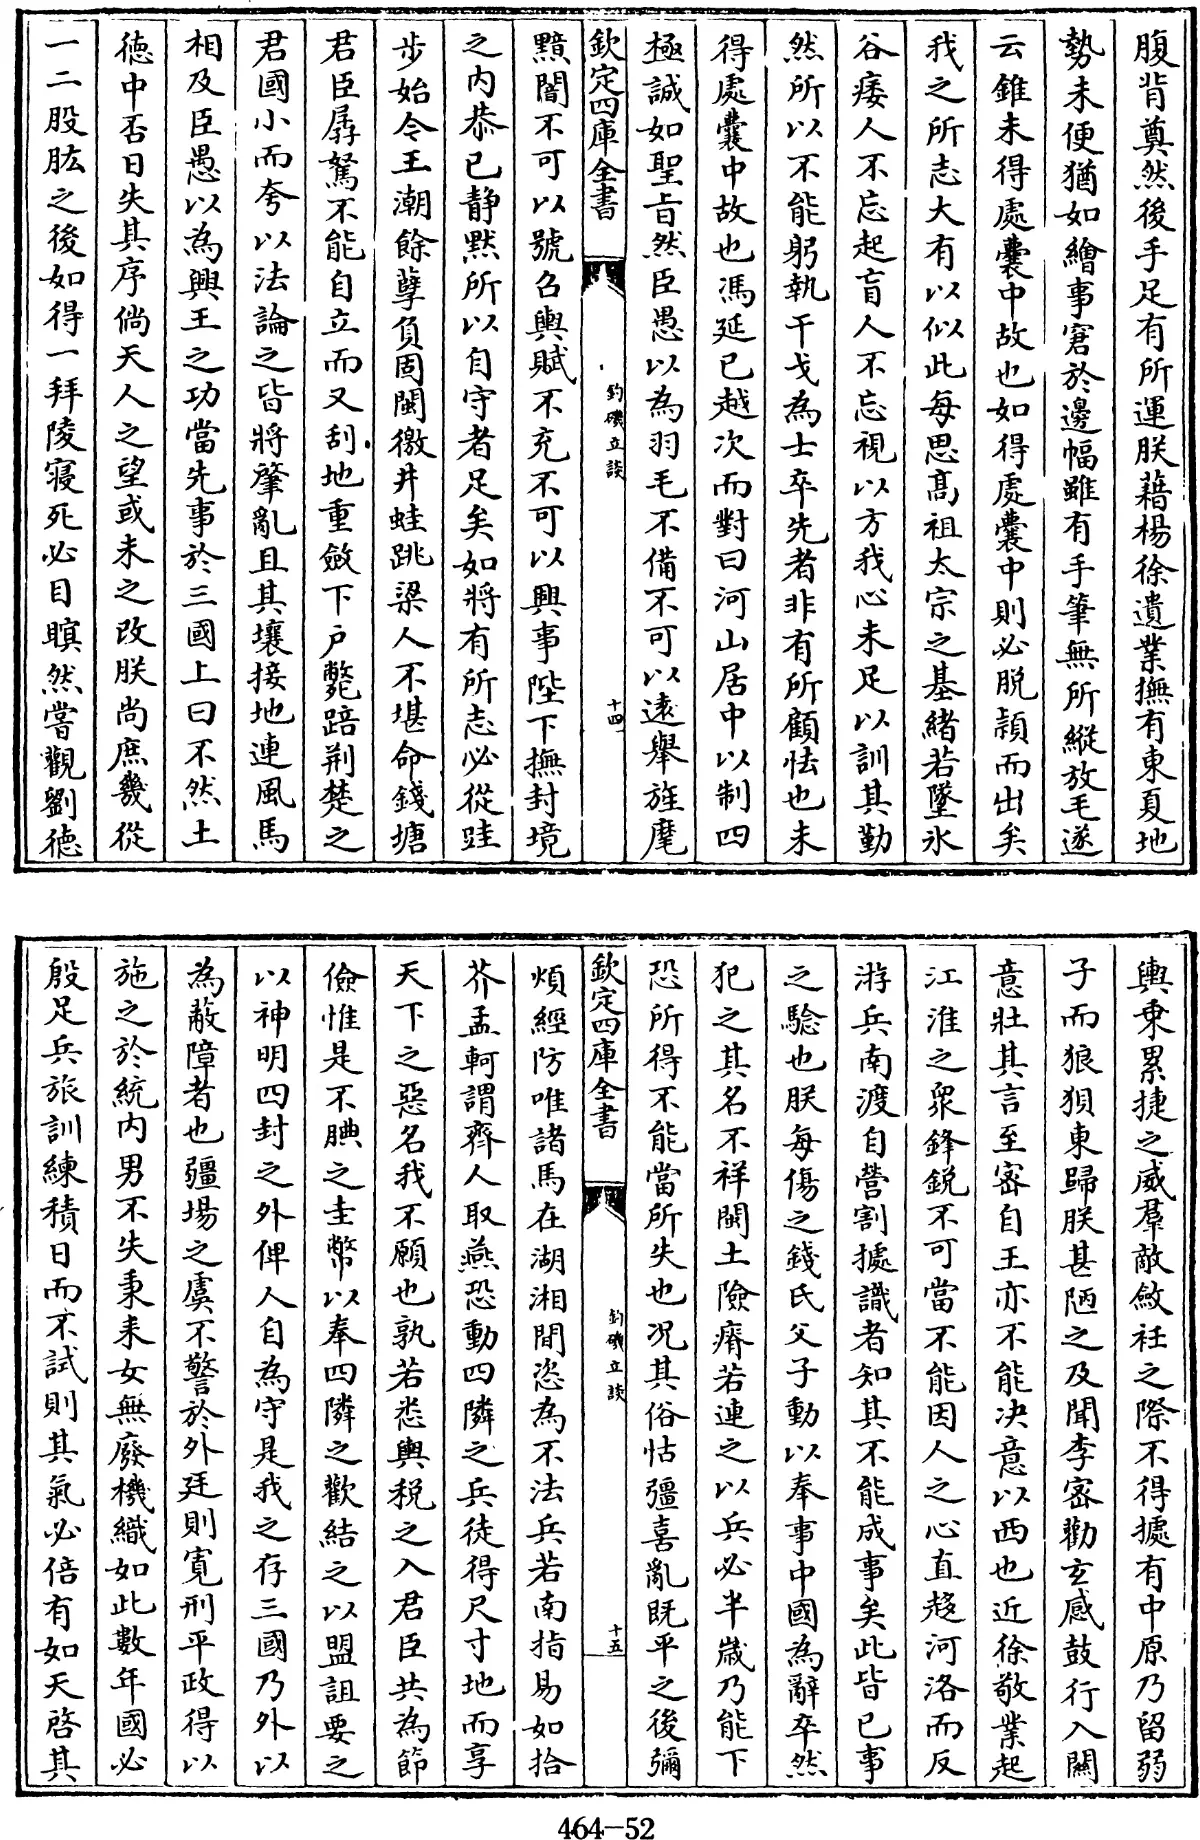 腹背奠然後手足有所運朕藉楊徐遺業撫有東夏地
勢未便猶如繪事窘於邊幅雖有手筆無所縱放毛遂
云錐未得處囊中故也如得處囊中則必脱頴而出矣
我之所志大有以似此每思髙祖太宗之基緒若墜氷
谷痿人不忘起盲人不忘視以方我心未足以訓其勤
然所以不能躬執干戈為士卒先者非有所顧怯也未
得處囊中故也馮延已越次而對曰河山居中以制四
極誠如聖㫖然臣愚以為羽毛不備不可以逺舉旌麾
欽定四庫全書
釣磯立談
十四
黯闇不可以號召輿賦不充不可以興事陛下撫封境
之内恭已静黙所以自守者足矣如將有所志必從跬
步始今王潮餘孽負固閩徼井蛙跳梁人不堪命錢塘
君臣孱駑不能自立而又刮地重斂下户斃踣荆楚之
君國小而夸以法論之皆將肇亂且其壤接地連風馬
相及臣愚以為興王之功當先事於三國上曰不然土
徳中否日失其序倘天人之望或未之改朕尚庶幾從
一二股肱之後如得一拜陵寢死必目瞑然嘗觀劉徳
輿乗累捷之威羣敵斂衽之際不得據有中原乃留弱
子而狼狽東歸朕甚陋之及聞李宻勸玄感鼓行入闗
意壯其言至宻自王亦不能决意以西也近徐敬業起
江淮之衆鋒鋭不可當不能因人之心直趍河洛而反
游兵南渡自營割據識者知其不能成事矣此皆已事
之驗也朕每傷之錢氏父子動以奉事中國為辭卒然
犯之其名不祥閩土險瘠若連之以兵必半嵗乃能下
恐所得不能當所失也况其俗怙彊喜亂既平之後彌
欽定四庫全書
釣磯立談
十五
煩經防唯諸馬在湖湘間恣為不法兵若南指易如拾
芥孟軻謂齊人取燕恐動四隣之兵徒得尺寸地而享
天下之惡名我不願也孰若悉輿税之入君臣共為節
儉惟是不腆之圭幣以奉四隣之歡結之以盟詛要之
以神明四封之外俾人自為守是我之存三國乃外以
為蔽障者也疆場之虞不警於外廷則寛刑平政得以
施之於統内男不失秉耒女無廢機織如此數年國必
殷足兵旅訓練積日而不試則其氣必倍有如天啓其
464-52